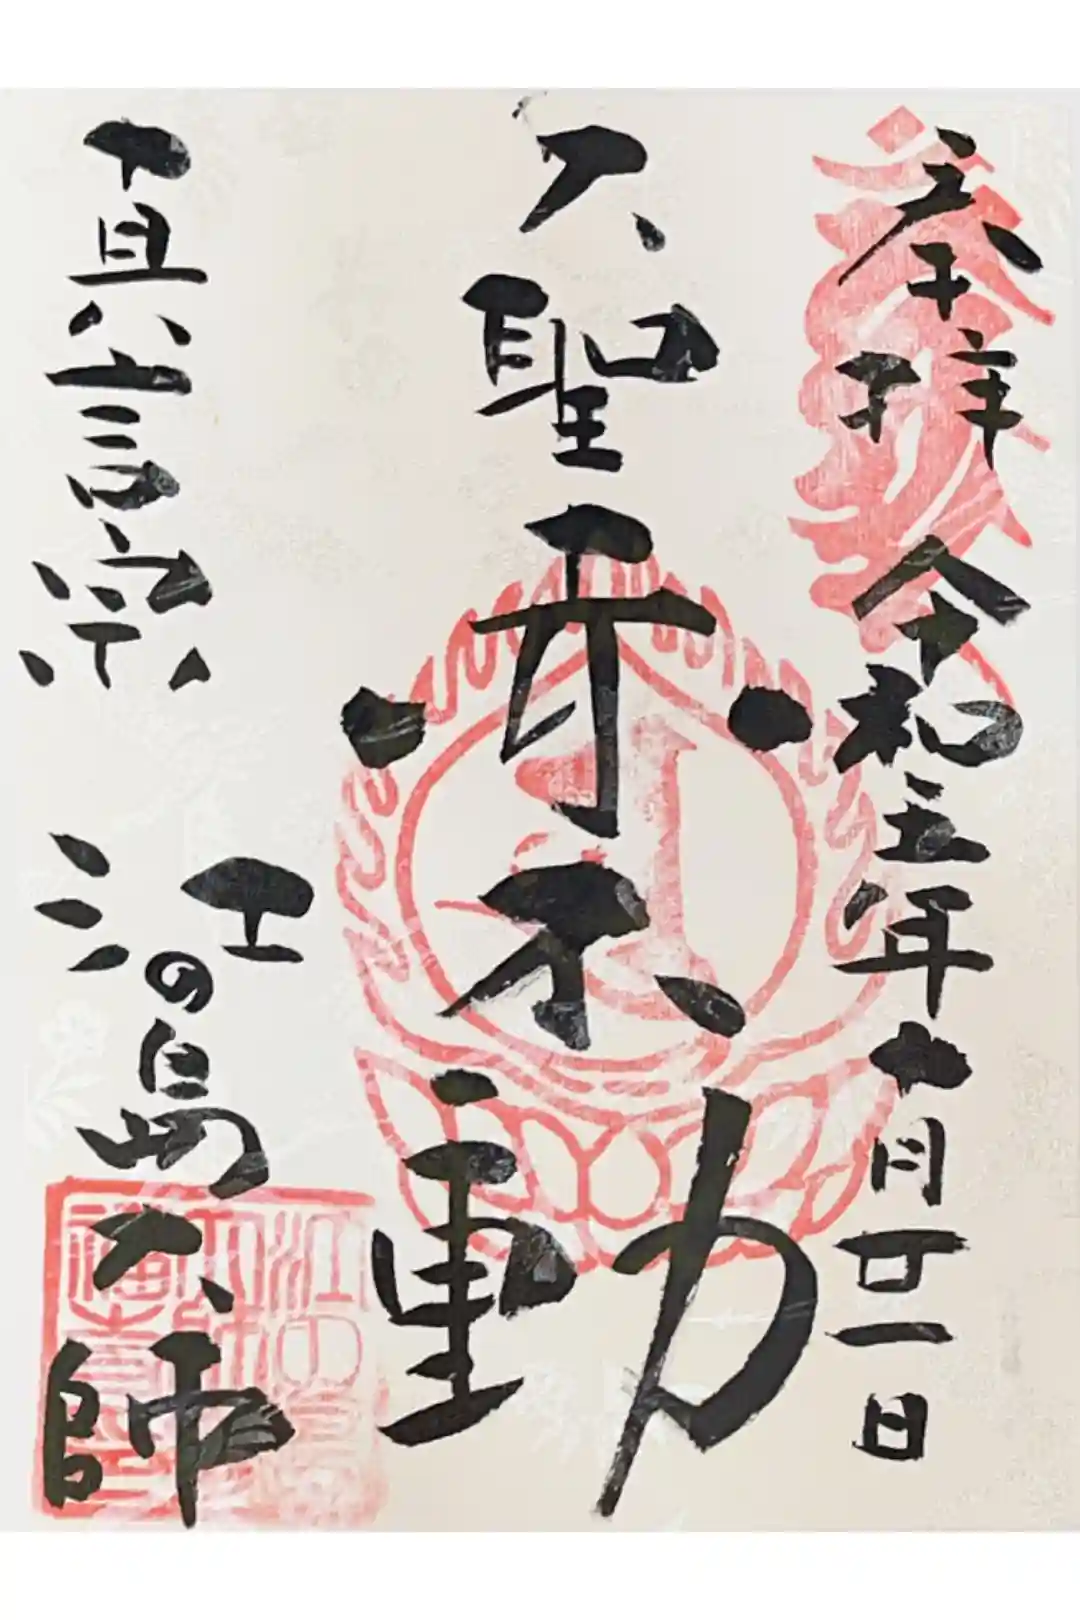 奉拝 令和五年十月廿一日
大聖赤不動
真言宗 江の島大師